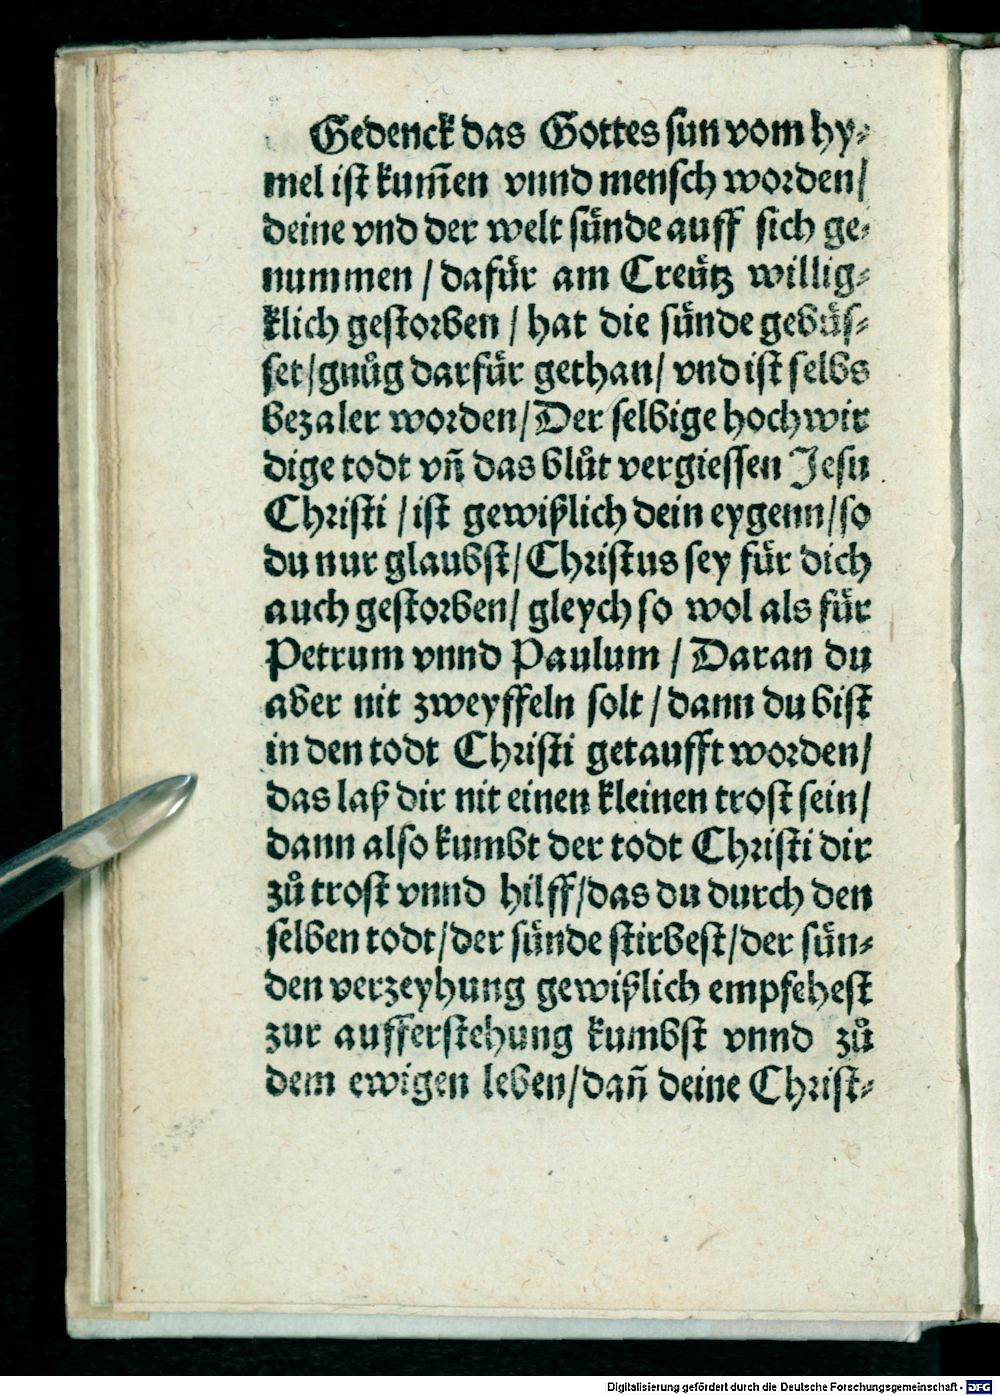 Gedenck das Gottes sun vom hy⸗
mel ist kum̃en vnnd mensch worden/
deine vnd der welt sünde auff sich ge⸗
nummen / dafür am Creütz willig⸗
klich gestorben / hat die sünde gebüs⸗
set/gnůg darfür gethan/ vnd ist selbs
bezaler worden/Der selbige hochwir
dige todt vñ das blůt vergiessen Jesu
Christi / ist gewißlich dein eygenn/so
du nur glaubst/Christus sey für dich
auch gestorben/ gleych so wol als für
Petrum vnnd Paulum / Daran du
aber nit zweyffeln solt / dann du bist
in den todt Christi getaufft worden/
das laß dir nit einen kleinen trost sein/
dann also kumbt der todt Christi dir
zů trost vnnd hilff/das du durch den
selben todt/der sünde stirbest/der sün⸗
den verzeyhung gewißlich empfehest
zur aufferstehung kumbst vnnd zů
dem ewigen leben/dañ deine Christ⸗
Digitalisierung gefördert durch die Deutsche Forschungsgemeinschaft - DFG